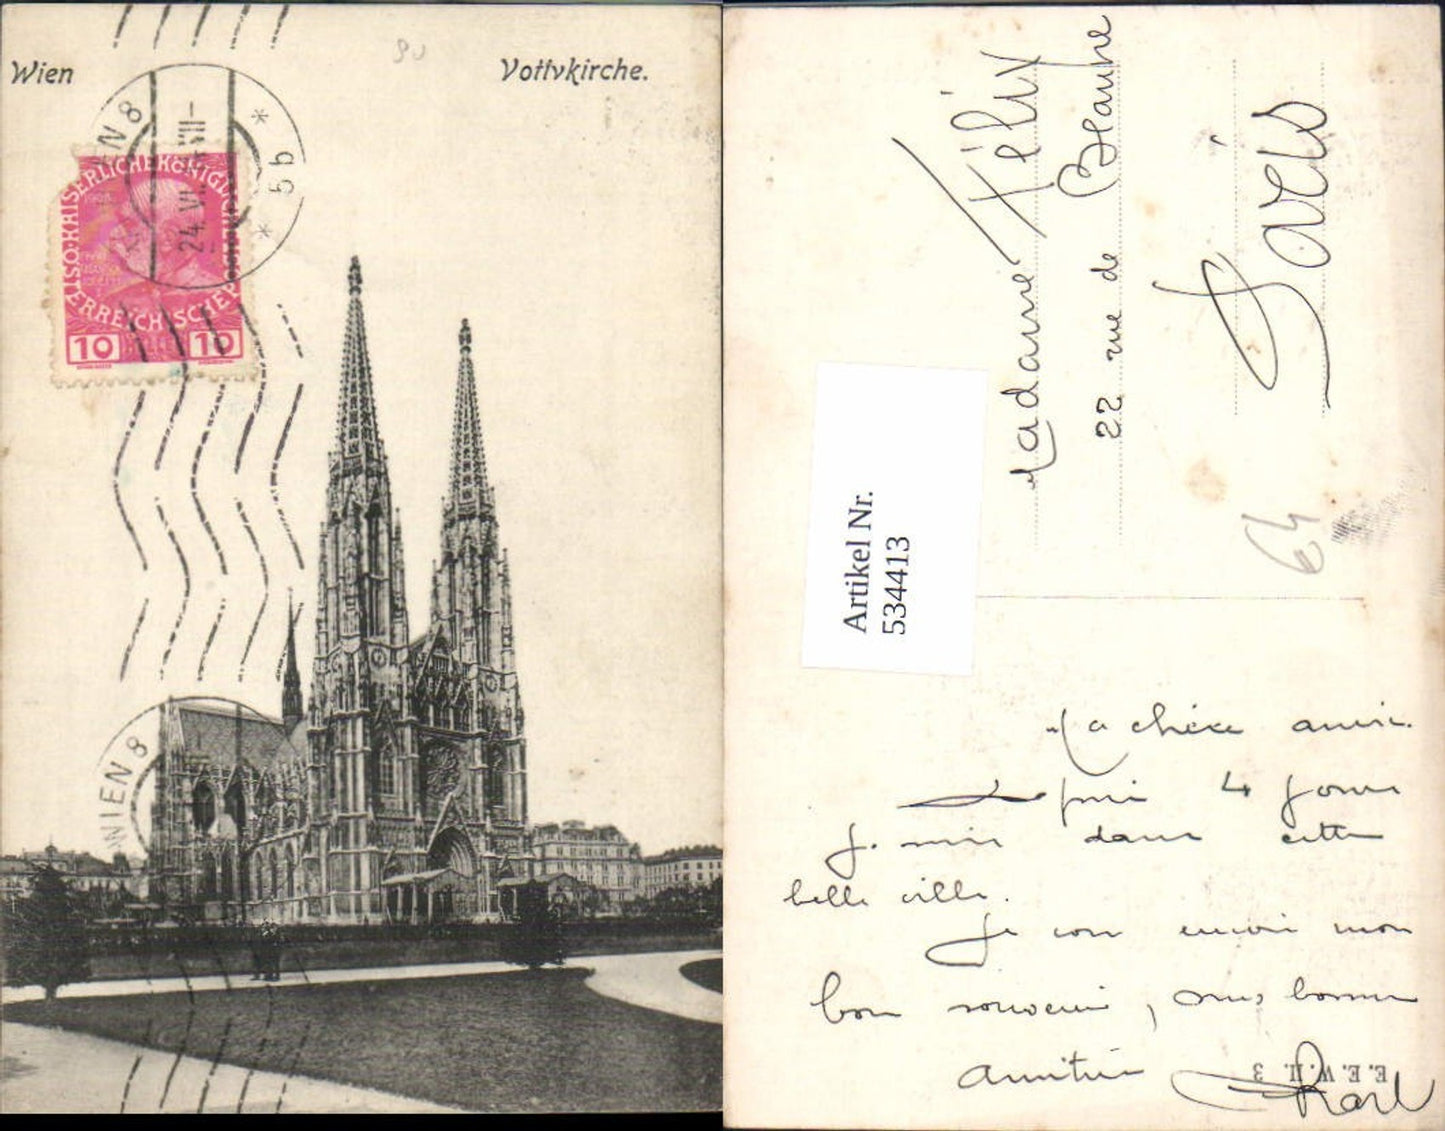 Wien
Votivkirche.
WIEN 8
* 5b *
24. VI. XII-
KAISERLICHE KÖNIGLICHE
ÖSTERREICHISCHE POST
10 HELLER 10
WIEN 8
Madame Félix
22 rue de Beaune
Paris
64
Artikel Nr.
534413
Ma chère amie.
Depuis 4 jours
je suis dans cette
belle ville.
Je vous envoie mon
bon souvenir, bonne
amitié
Karl
E. E. W. II. 3